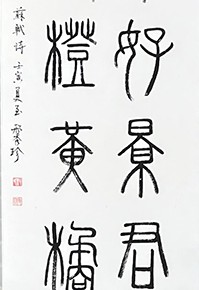 好景君
橙黃橘
蘇軾詩 壬寅夏至 秀珍